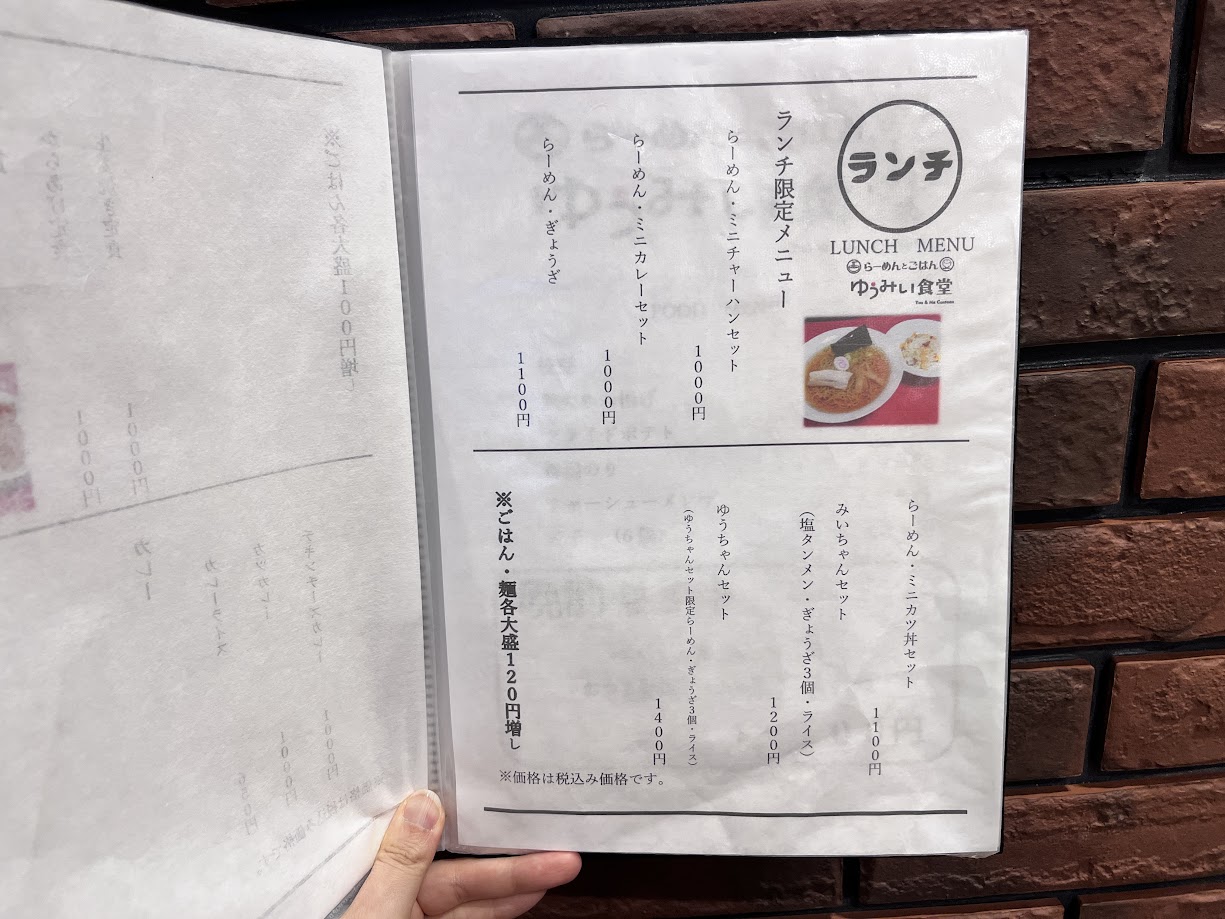 ランチ
LUNCH MENU
らーめんとごはん
ゆうみい食堂
You & Me Canteen
ランチ限定メニュー
らーめん・ミニチャーハンセット
1000円
らーめん・ミニカレーセット
1000円
らーめん・ぎょうざ
1100円
らーめん・ミニカツ丼セット
1100円
みいちゃんセット
(塩タンメン・ぎょうざ3個・ライス)
1200円
ゆうちゃんセット
(ゆうちゃんセット限定らーめん・ぎょうざ3個・ライス)
1400円
※ごはん・麺各大盛120円増し
※価格は税込み価格です。
※ごはん各大盛100円増し
1000円
1000円
カレー
チキンチーズカレー
1000円
カツカレー
カレーライス